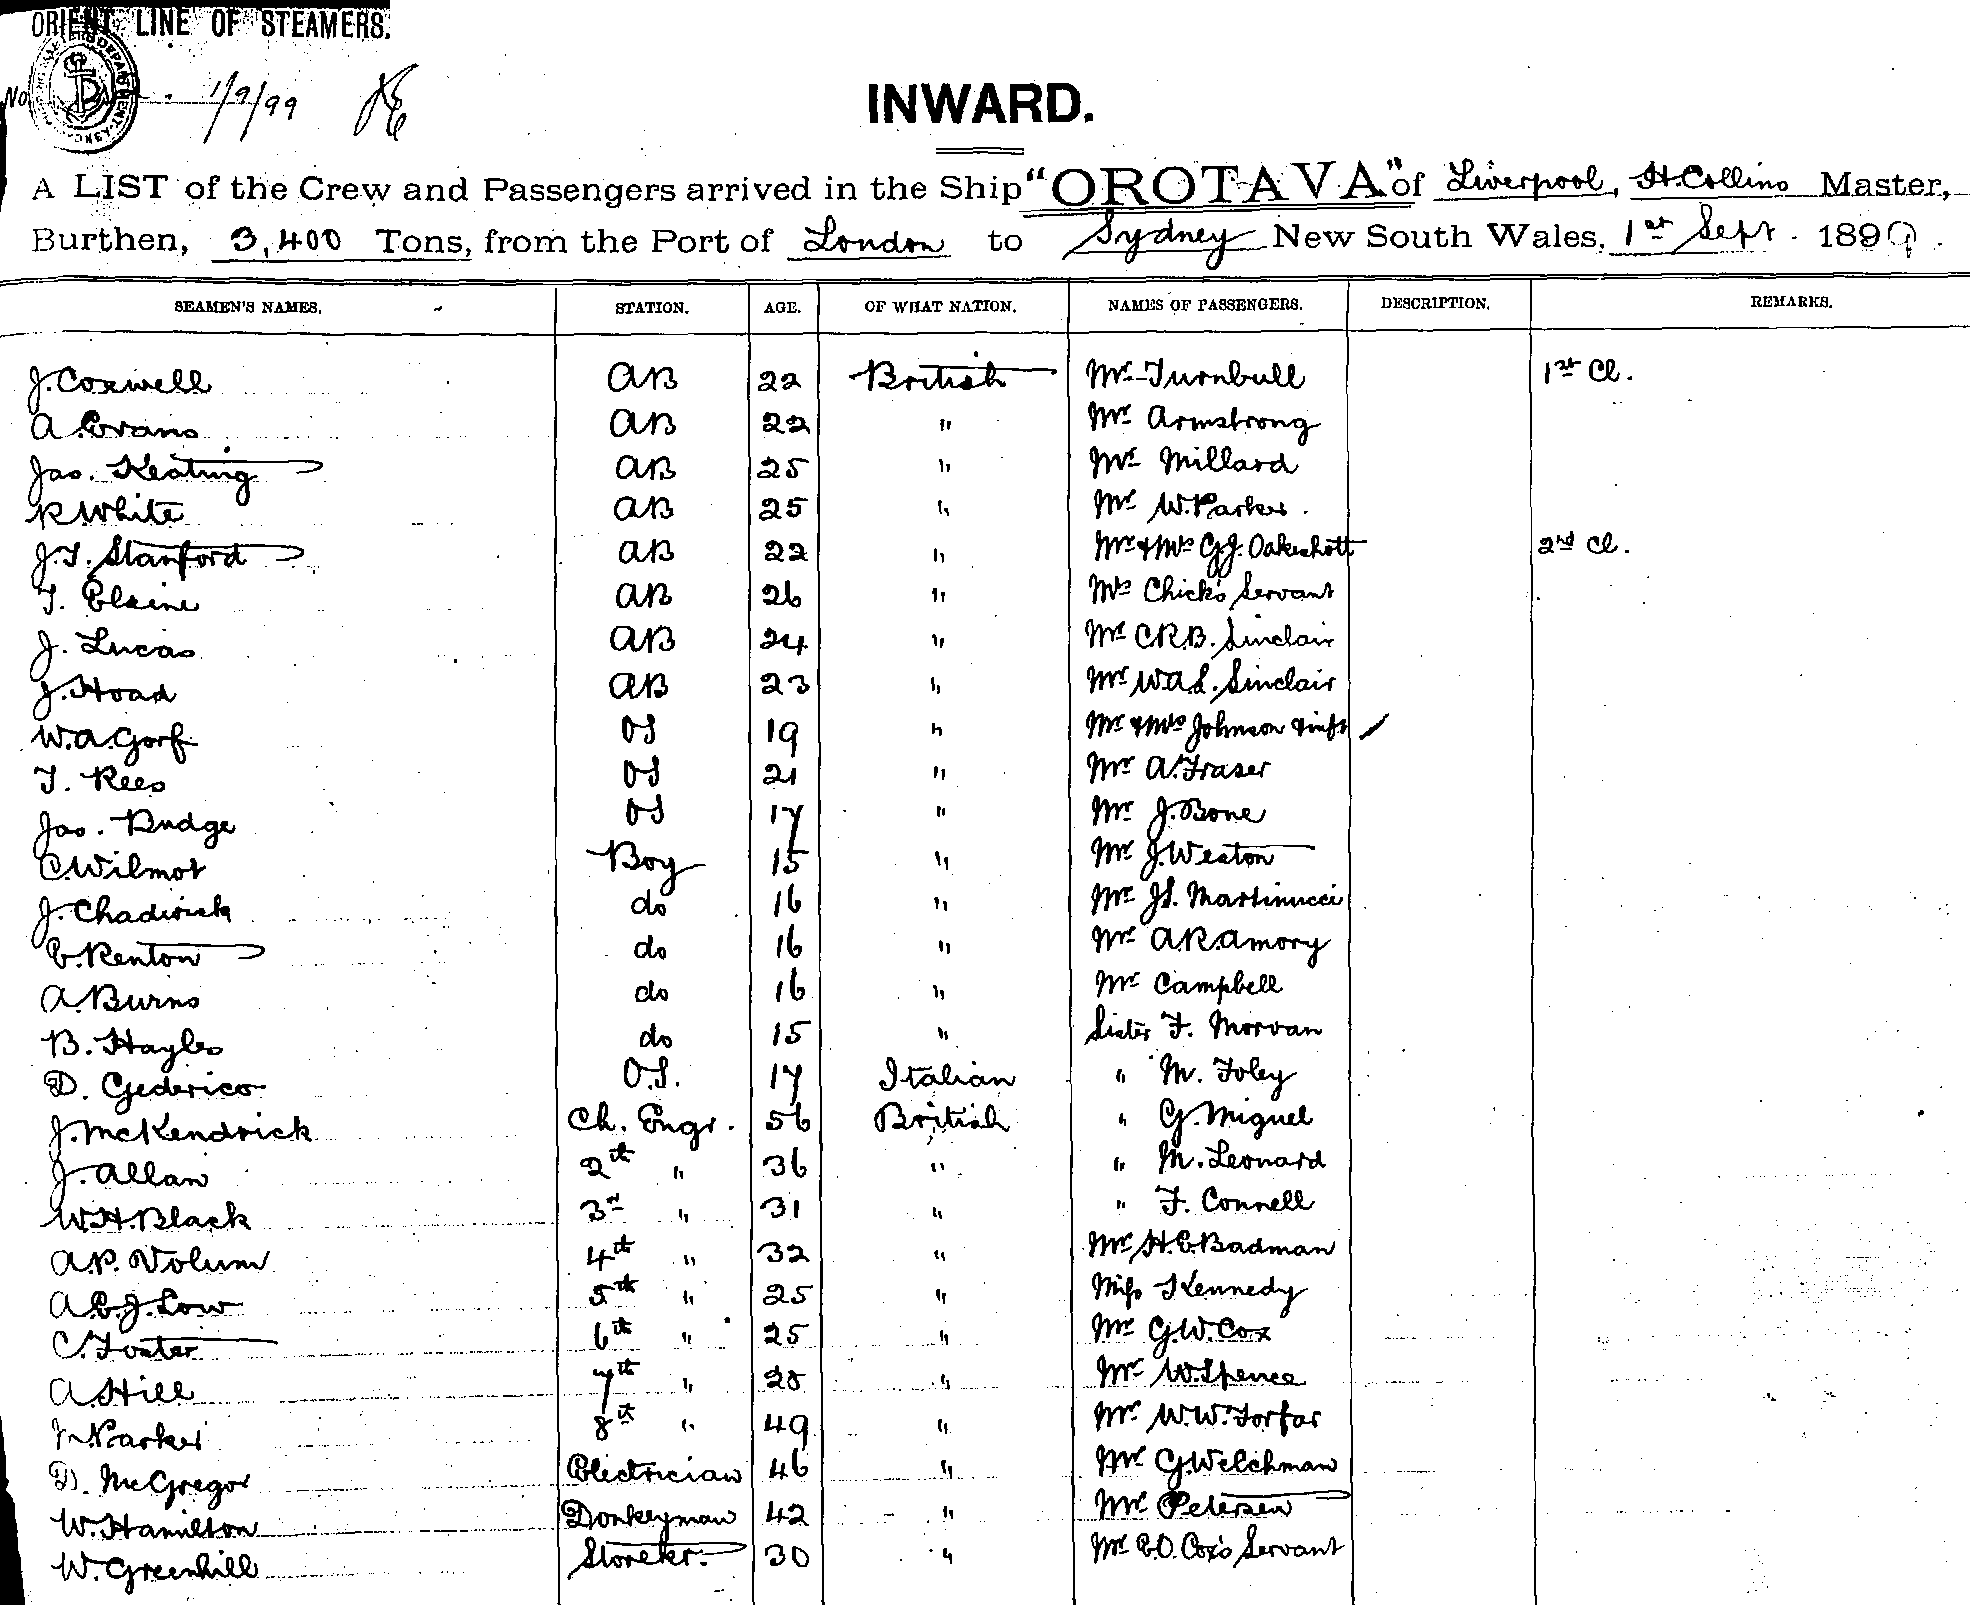 ORIENT LINE OF STEAMERS.
No 1/9/99
INWARD.
A LIST of the Crew and Passengers arrived in the Ship "OROTAVA" of Liverpool, H. Collins Master,
Burthen, 3,400 Tons, from the Port of London to Sydney New South Wales, 1st Sept. 1899.
SEAMEN'S NAMES. STATION. AGE. OF WHAT NATION. NAMES OF PASSENGERS. DESCRIPTION. REMARKS.
J. Coxwell AB 22 British Mr Turnbull 1st Cl.
A. Evans AB 22 " Mr Armstrong
Jas. Keating AB 25 " Mr Millard
R. White AB 25 " Mr W. Parker.
J.T. Stanford AB 22 " Mr & Mrs G.J. Oakeshott 2nd Cl.
T. Elaine AB 26 " Mrs Chick's Servant
J. Lucas AB 24 " Mr C.R.B. Sinclair
J. Hoad AB 23 " Mr W.A.S. Sinclair
W.A. Gorf OS 19 " Mr & Mrs Johnson & inft
T. Rees OS 21 " Mr A. Fraser
Jas. Rudge OS 17 " Mr J. Bone
C. Wilmot Boy 15 " Mr J. Weston
J. Chadwick do 16 " Mr J.S. Martinucci
E. Renton do 16 " Mr A.R. Amory
A. Burns do 16 " Mr Campbell
B. Hayles do 15 " Sister F. Morvan
D. Gederico O.S. 17 Italian " M. Foley
J. McKendrick Ch. Engr. 56 British " G. Miguel
J. Allan 2th " 36 " " M. Leonard
W.H. Black 3rd " 31 " " F. Connell
A.P. Volum 4th " 32 " Mr H.E. Badman
A.E.J. Low 5th " 25 " Miss Kennedy
C. Foster 6th " 25 " Mr G.W. Cox
A. Hill 7th " 28 " Mr W. Spence
J. Parker 8th " 49 " Mr W.W. Forfar
D. McGregor Electrician 46 " Mr G. Welchman
W. Hamilton Donkeyman 42 " Mr Petersen
W. Greenhill Storekr. 30 " Mr E.O. Cox's Servant